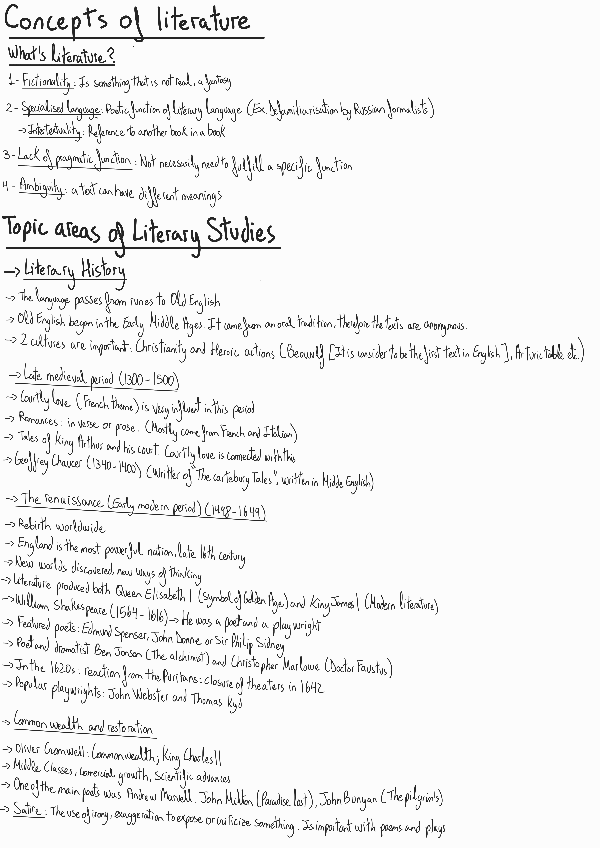 Concepts of literature
What's literature?
1- Fictionality: Is something that is not real, a fantasy
2- Specialised language: Poetic function of literary language (Ex. Defamiliarisation by Russian formalists)
→ Intertextuality: Reference to another book in a book
3- Lack of pragmatic function: Not necessarily need to fulfill a specific function
4- Ambiguity: a text can have different meanings
Topic areas of Literary Studies
→ Literary History
→ The language passes from runes to Old English
→ Old English began in the Early Middle Ages. It came from an oral tradition, therefore the texts are anonymous.
→ 2 cultures are important: Christianity and Heroic actions (Beowulf [It is consider to be the first text in English], Arturic table etc.)
→ Late medieval period (1300-1500)
→ Courtly love (French theme) is very influent in this period
→ Romances: in verse or prose. (Mostly came from French and Italian)
→ Tales of King Arthur and his court. Courtly love is connected with this
→ Geoffrey Chaucer (1340-1400) (Writter of "The cartebury Tales", written in Middle English)
→ The renaissance (Early modern period) (1498-1649)
→ Rebirth worldwide
→ England is the most powerful nation, late 16th century
→ New worlds discovered, new ways of thinking
→ Literature produced both Queen Elisabeth I (symbol of Golden Age) and King James I (Modern literature)
→ William Shakespeare (1564-1616) → He was a poet and a playwright
→ Featured poets: Edmund Spenser, John Donne or Sir Philip Sidney
→ Poet and dramatist Ben Jonson (The alchimist) and Christopher Marlowe (Doctor Faustus)
→ In the 1620s: reaction from the Puritans: closure of theaters in 1642
→ Popular playwrights: John Webster and Thomas Kyd
→ Common wealth and restoration
→ Oliver Cromwell: Commonwealth; King Charles II
→ Middle Classes, comercial growth, scientific advances
→ One of the main poets was Andrew Marvell. John Milton (Paradise lost), John Bunyan (The pilgrim's)
→ Satire: The use of irony, exaggeration to expose or criticize something. Is important with poems and plays